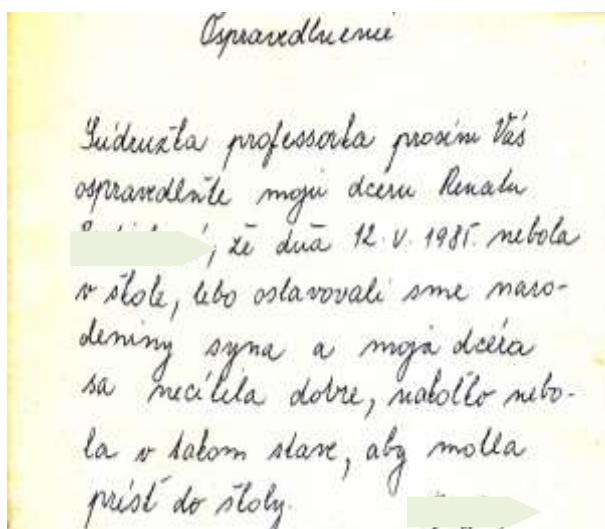 Ospravedlnenie
Súdružka professorka prosím Vás
ospravedlňte moju dceru Renatu
, že dňa 12. V. 1985. nebola
v škole, lebo oslavovali sme naro-
deniny syna a moja dcéra
sa necítila dobre, nakoľko nebo-
la v takom stave, aby mohla
prísť do školy.